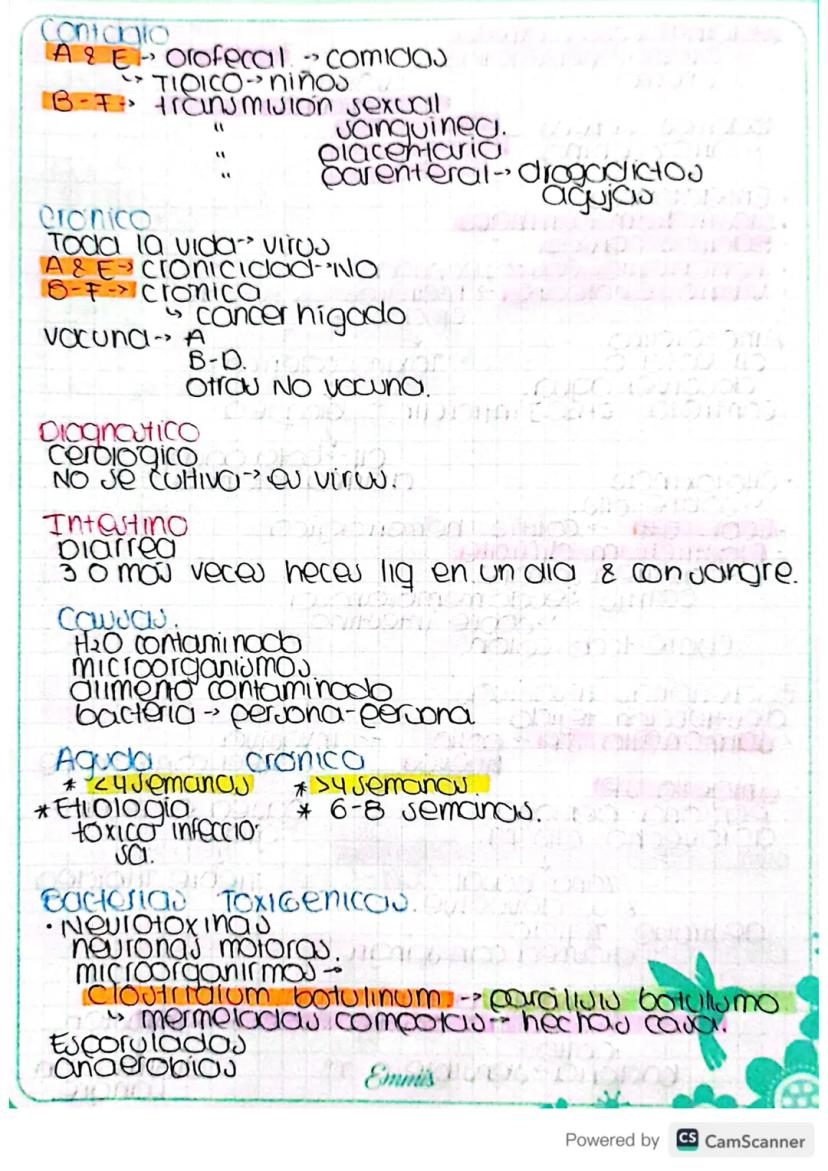 Contagio
A & E → orofecal → comidas
↳ TIPICO → niños
B-F → transmisión sexual
" sanguinea.
" placentaria
" parenteral → drogadictos
agujas
Crónico
Toda la vida → virus
A & E → cronicidad → NO
B-F → cronica
↳ cancer hígado
vacuna → A
B-D.
otras No vacuna.
Diagnostico
Cerologico
No se cultiva → es virus.
Intestino
Diarrea
3 o más veces heces liq en un dia & con sangre.
Causas.
H2O contaminado
microorganismos
alimento contaminado
bacteria → persona-persona
Aguda crónica
* <4 semanas * >4 semanas
* Etiologia * 6-8 semanas.
toxico infeccio-
sa.
Bacterias Toxigenicas.
· Neurotoxinas
neuronas motoras.
microorganirmos →
Clostridium botulinum → parálisis botulismo
↳ mermeladas compotas → hechas casa.
Esporuladas
anaerobias
Emmis
Powered by CS CamScanner